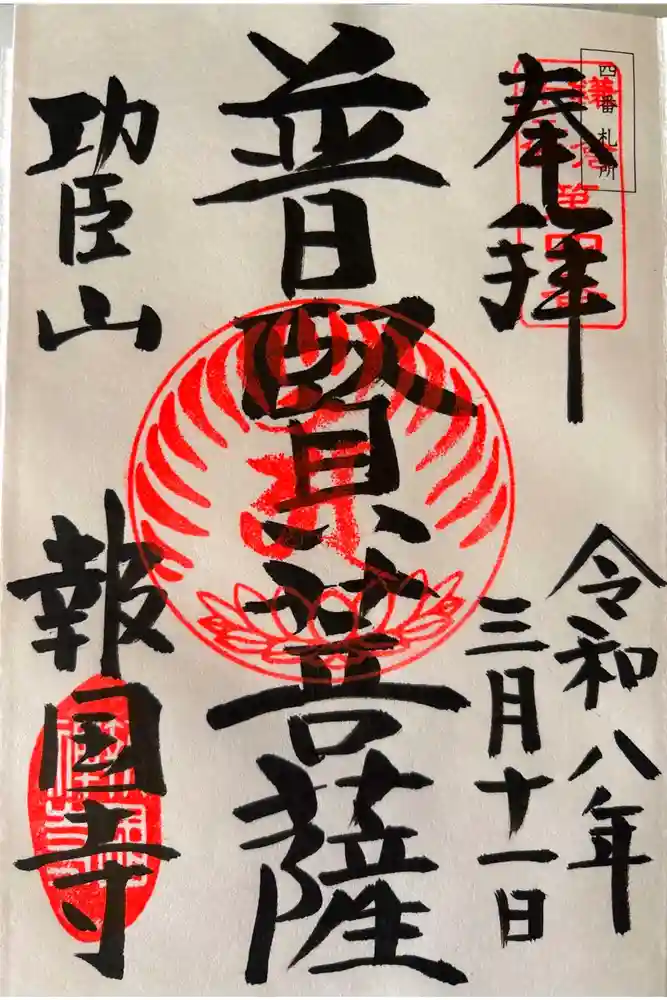 四番札所
奉拝
令和八年
三月十一日
普賢菩薩
功臣山
報国寺